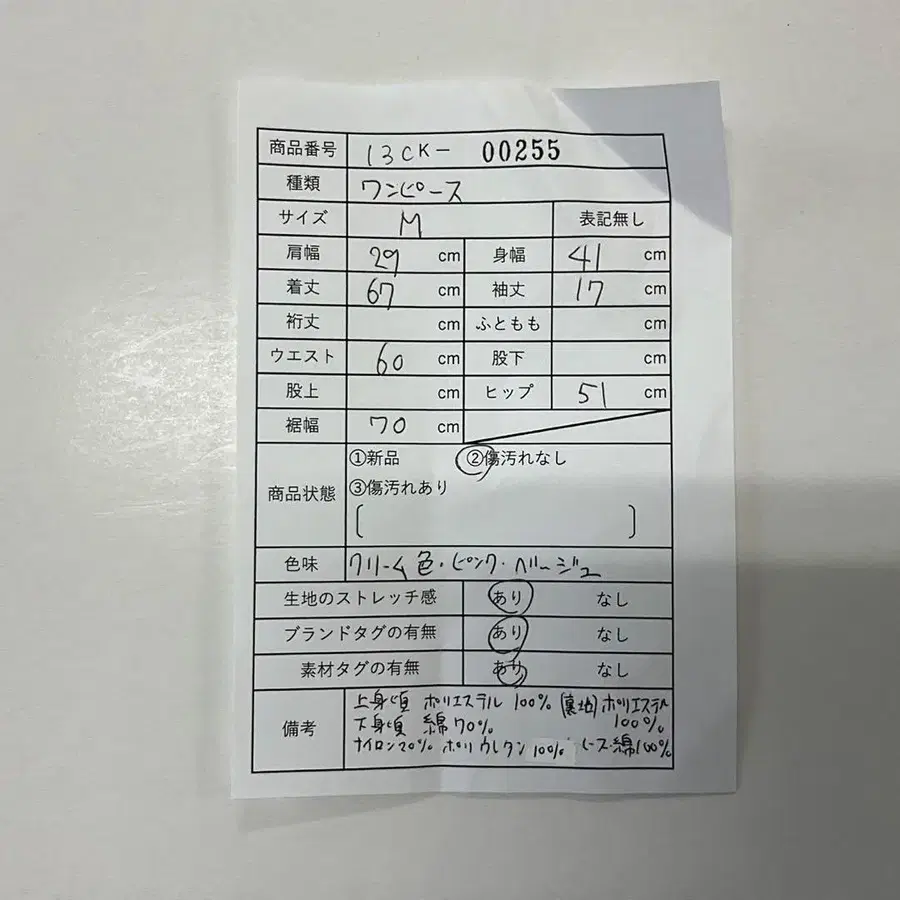 商品番号 13CK- 00255
種類 ワンピース
サイズ M 表記無し
肩幅 29 cm 身幅 41 cm
着丈 67 cm 袖丈 17 cm
裄丈 cm ふともも cm
ウエスト 60 cm 股下 cm
股上 cm ヒップ 51 cm
裾幅 70 cm
①新品 ②傷汚れなし
商品状態 ③傷汚れあり
[ ]
色味 クリーム色・ピンク・ベージュ
生地のストレッチ感 あり なし
ブランドタグの有無 あり なし
素材タグの有無 あり なし
上身頃 ポリエステル 100% (裏地) ポリエステル
備考 下身頃 綿70% 100%
ナイロン20% ポリウレタン 100% レース・綿100%